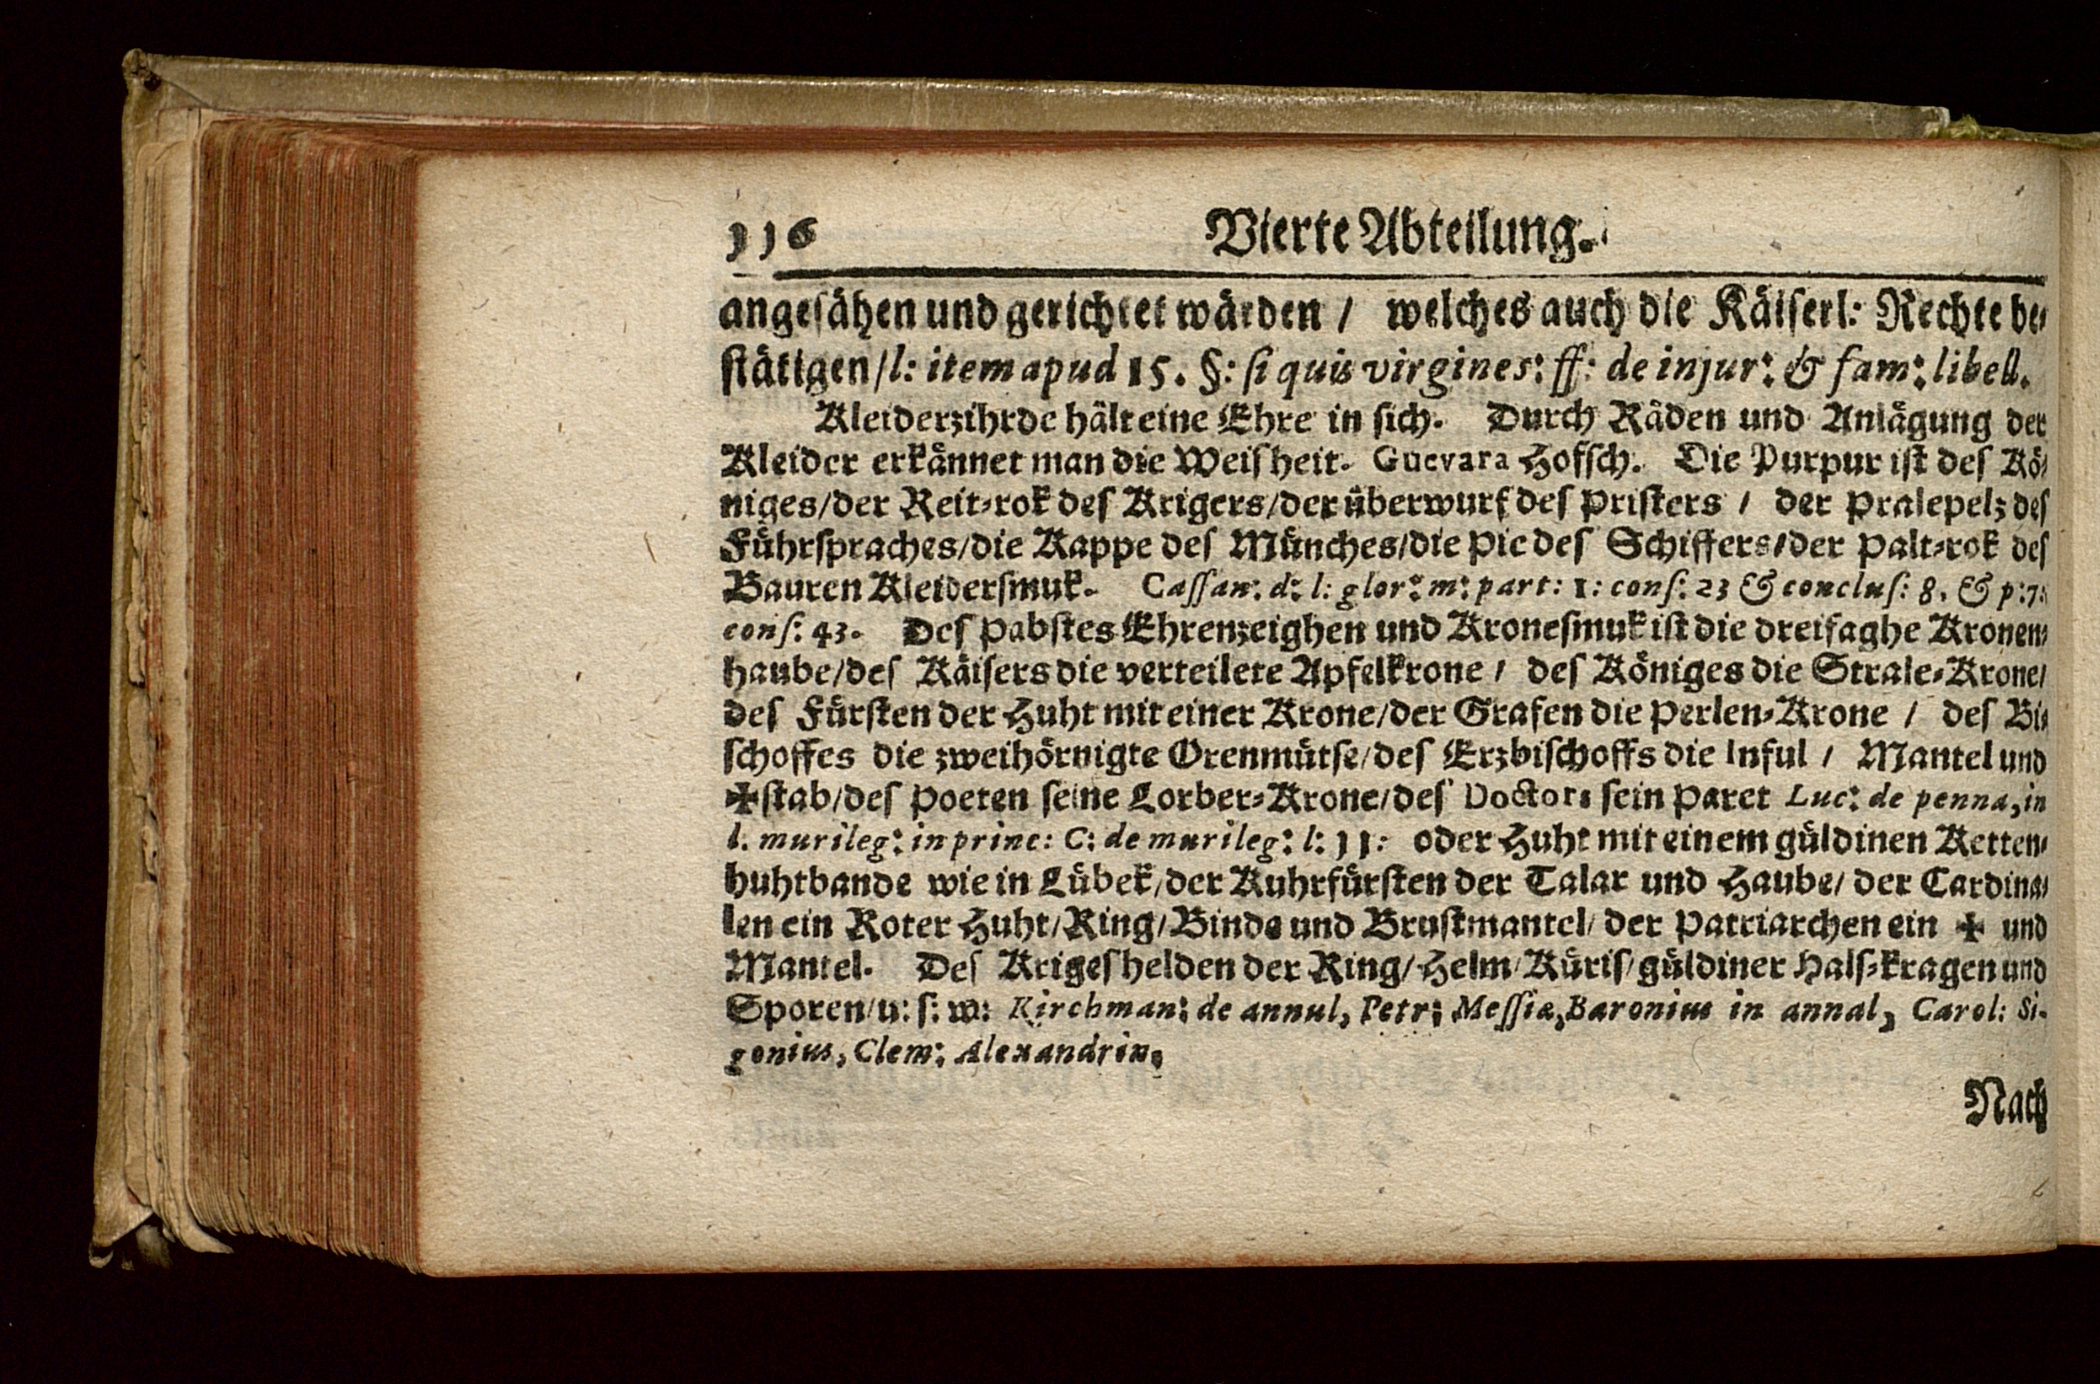 116 Vierte Abteilung.
angesåhen und gerichtet wården / welches auch die Kåiserl: Rechte be-
ståtigen / l: item apud 15. §: si quis virgines: ff: de injur: & fam: libell.
Kleiderzihrde hålt eine Ehre in sich. Durch Råden und Anlågung der
Kleider erkånnet man die Weisheit. Guevara Hofsch. Die Purpur ist des Kö-
niges / der Reit-rok des Krigers / der überwurf des Pristers / der Pralepelz des
Führspraches / die Kappe des Münches / die Pie des Schiffers / der Palt-rok des
Bauren Kleidersmuk. Cassan: d: l: glor: m: part: 1: cons: 23 & conclus: 8. & p: 7:
cons: 43. Des Pabstes Ehrenzeighen und Kronesmuk ist die dreifaghe Kronen-
haube / des Kåisers die verteilete Apfelkrone / des Königes die Strale-Krone /
des Fürsten der Huht mit einer Krone / der Grafen die Perlen-Krone / des Bi-
schoffes die zweihörnigte Orenmütse / des Erzbischoffs die Inful / Mantel und
✠stab / des Poeten seine Lorber-Krone / des Doctors sein Paret Luc: de penna, in
l. murileg: in princ: C: de murileg: l: 11: oder Huht mit einem güldinen Ketten-
huhtbande wie in Lübek / der Kuhrfürsten der Talar und Haube / der Cardina-
len ein Roter Huht / Ring / Binde und Brustmantel / der Patriarchen ein ✠ und
Mantel. Des Krigeshelden der Ring / Helm / Küris / güldiner Hals-kragen und
Sporen / u: s: w: Kirchman: de annul, Petr: Messiæ, Baronius in annal, Carol: Si-
gonius, Clem: Alexandrin.
Nach